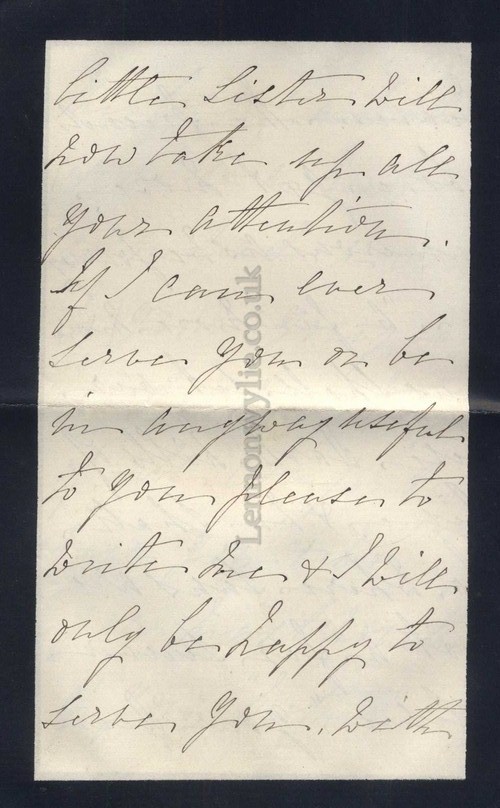 little Sister will
now take up all
your attention.
If I can ever
serve you or be
in anyway useful
to you please to
write me & I will
only be happy to
serve you. With
Lennonwylie.co.uk